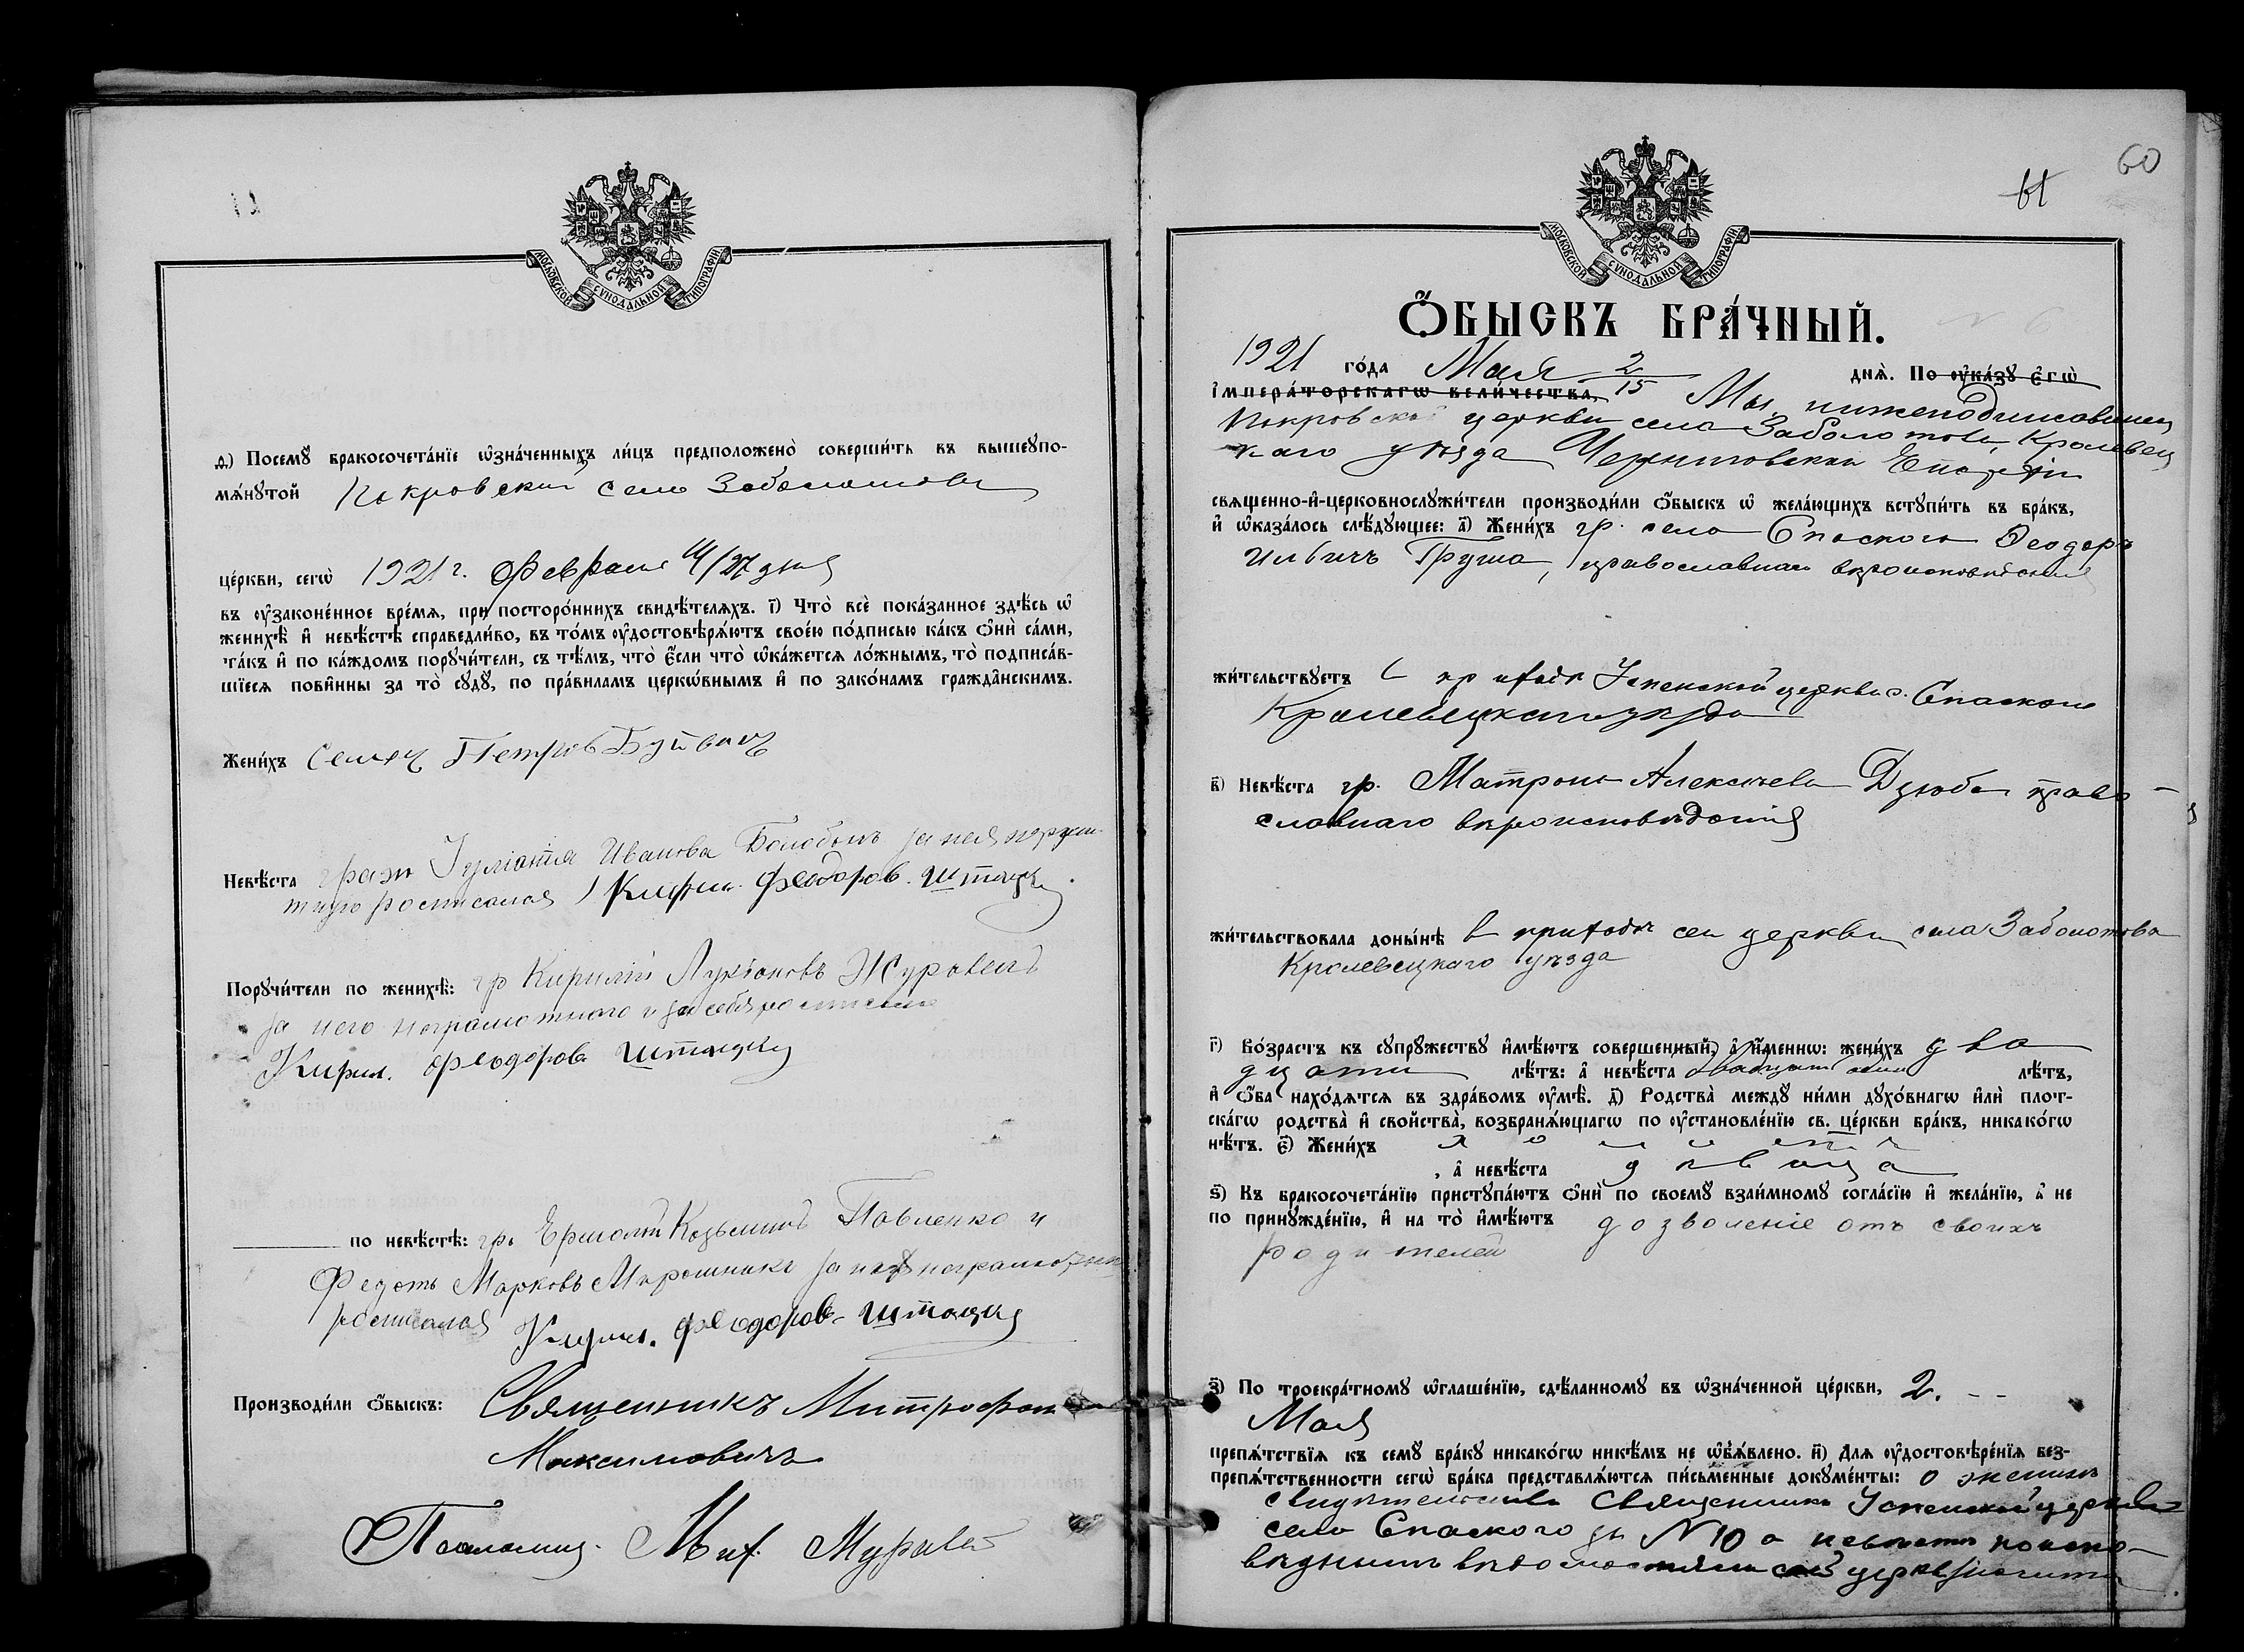 МОСКОВСКОЙ СѴНОДАЛЬНОЙ ТИПОГРАФІИ
д҃) Посемꙋ̀ бракосочета́нїе ѡ҆зна́ченныхъ ли́цъ предположено̀ соверши́ть въ вышеꙋпо-
мѧ́нꙋтой Покровской села Заболотова
це́ркви, сегѡ̀ 1921 г. Февраля 14/27 дня
въ ᲂу҆законе́нное вре́мѧ, при посторо́ннихъ свидѣ́телѧхъ. і҃) Что̀ всѐ пока́занное здѣ́сь ѡ҆
женихѣ̀ и҆ невѣ́стѣ справедли́во, въ то́мъ ᲂу҆достовѣрѧ́ютъ свое́ю по́дписью ка́къ ѻ҆нѝ са́ми,
та́къ и҆ по ка́ждомъ порꙋчи́тели, съ тѣ́мъ, что̀ є҆́сли что̀ ѡ҆ка́жетсѧ ло́жнымъ, то̀ подписа́в-
шїесѧ пови́нны за то̀ сꙋдꙋ̀, по пра́виламъ церкѡ́внымъ и҆ по зако́намъ гражда̂нскимъ.
Жени́хъ Семен Петров Буйвал
Невѣ́ста граж Иванова за нея неграмо-
тную росписался Кирил. Феодоров. Штанцкий
Порꙋчи́тели по женихѣ̀: гр Кирилій Лукіановъ Журавель
За него неграмотного и за себя росписался
Кирил. Феодоров Штанцкий
по невѣ́стѣ: гр. Ермолай Козьминъ Павленко и
Федотъ Марковъ Мирошникъ за них неграмотных
росписался Кирил. Феодоров Штанцкий
Производи́ли ѻ҆́быскъ: Священникъ Митрофан
Максимовичъ
Псаломщ. Мих. Муравей
60
61
МОСКОВСКОЙ СѴНОДАЛЬНОЙ ТИПОГРАФІИ
Ѻ҆́БЫСКЪ БРА́ЧНЫЙ.
N 6
1921 го́да Мая 2/15 днѧ̀. По ᲂу҆ка́зꙋ є҆гѡ̀
і҆мпера́торскагѡ вели́чества, Мы, нижеподписавшиеся
Покровской церкви села Заболотова, Кролевец
каго уѣзда Черниговской Епархіи
свѧще́нно-и҆-церковнослꙋжи́тели производи́ли ѻ҆́быскъ ѡ҆ жела́ющихъ встꙋпи́ть въ бра́къ,
и҆ ѡ҆каза́лось слѣ́дꙋющее: а҃) Жени́хъ гр. села Спаского Ѳеодоръ
Ильичъ Груша, православнаго вѣроисповѣданія
жи́тельствꙋетъ в приходѣ Успенской церкви с. Спаского
Кролевецкаго уѣзда
в҃) Невѣ́ста гр. Матрона Алексѣева Дзюба право-
славнаго вѣроисповѣданія
жи́тельствовала доны́нѣ в приходѣ сей церкви села Заболотова
Кролевецкаго уѣзда
г҃) Во́зрастъ къ сꙋпрꙋ́жествꙋ и҆мѣ́ютъ соверше́нный, а҆ и҆́меннѡ: жени́хъ два
дцати лѣ́тъ: а҆ невѣ́ста двадцати лѣ́тъ,
и҆ ѻ҆́ба нахо́дѧтсѧ въ здра́вомъ ᲂу҆мѣ̀. д҃) Родства̀ междꙋ̀ ни́ми дꙋхо́внагѡ и҆лѝ плот-
ска́гѡ родства̀ и҆ свойства̀, возбранѧ́ющагѡ по ᲂу҆становле́нїю св. це́ркви бра́къ, никако́гѡ
нѣ́тъ. є҃) Жени́хъ холостъ
, а҆ невѣ́ста дѣвица
ѕ҃) Къ бракосочета́нїю пристꙋпа́ютъ ѻ҆нѝ по своемꙋ̀ взаи́мномꙋ согла́сїю и҆ жела́нїю, а҆ не
по принꙋжде́нїю, и҆ на то̀ и҆мѣ́ютъ дозволеніе отъ своихъ
родителей
з҃) По троекра́тномꙋ ѡ҆глаше́нїю, сдѣ́ланномꙋ въ ѡ҆зна́ченной це́ркви, 2.
Мая
препѧ́тствїѧ къ семꙋ̀ бра́кꙋ никако́гѡ никѣ́мъ не ѡ҆б̾ѧ́влено. и҃) Длѧ ᲂу҆достовѣре́нїѧ без-
препѧ́тственности сегѡ̀ бра́ка представлѧ́ютсѧ пи́сьменные докꙋме́нты: о женихѣ
свидѣтельство Священника Успенской церкви
села Спаского за N 10 о невѣстѣ по испо-
вѣднымъ вѣдомостямъ сей церкви